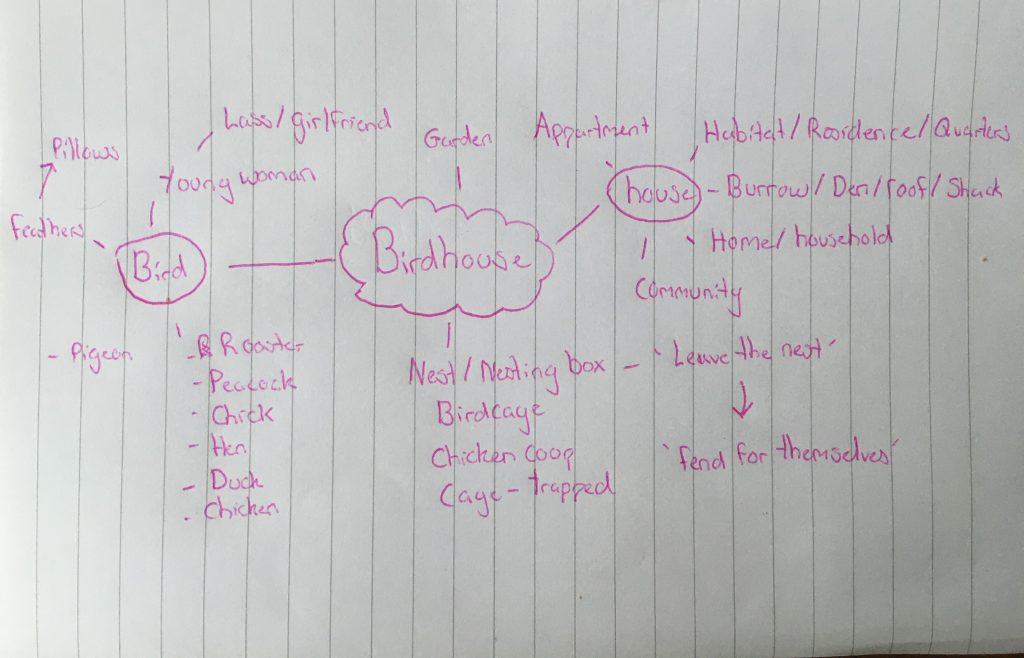 Lass/Girlfriend
Pillows
Young woman
Feathers
Bird
Garden
Birdhouse
Appartment
Habitat/Roordence/Quarters
house - Burrow/Den/roof/Shack
Home/household
Community
- Pigeon
- Rooster
- Peacock
- Chick
- Hen
- Duck
- Chicken
Nest/Nesting box - 'Leave the nest'
Birdcage
Chicken coop
Cage - trapped
'fend for themselves'